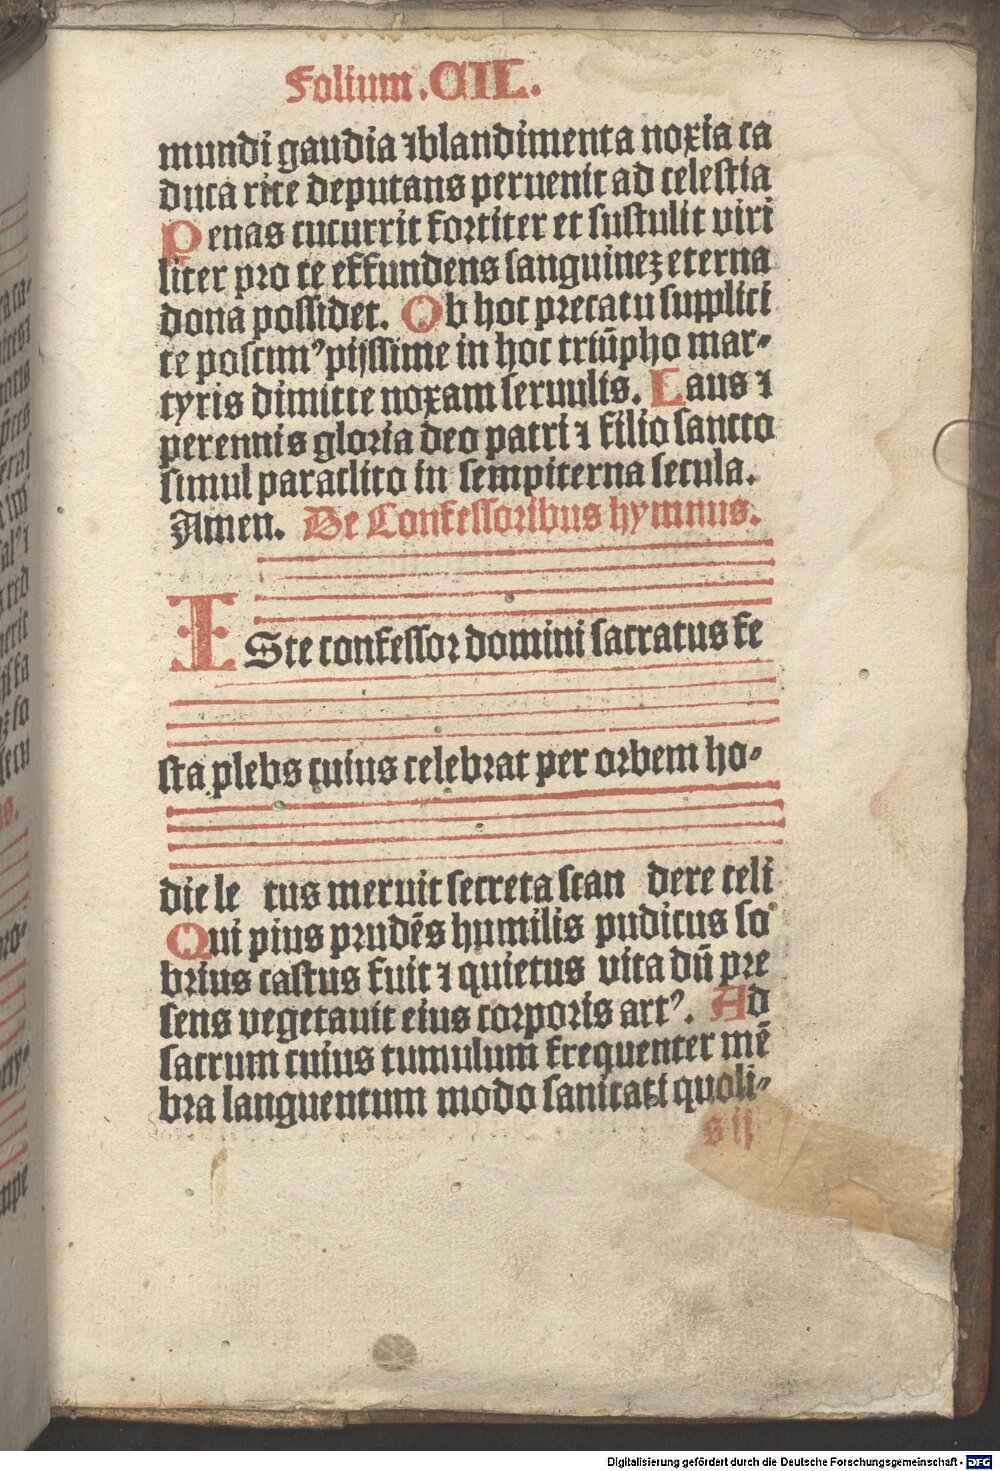 Folium .CIL.
mundi gaudia ⁊ blandimenta noxia ca
duca rite deputans peruenit ad celestia
Penas cucurrit fortiter et sustulit viri
liter pro te effundens sanguineꝫ eterna
dona possidet. Ob hoc precatu supplici
te poscimꝰ pijssime in hoc triūpho mar⸗
tyris dimitte noxam seruulis. Laus ⁊
perennis gloria deo patri ⁊ filio sancto
simul paraclito in sempiterna secula.
Amen. De Confessoribus hymnus.
ISte confessor domini sacratus fe
sta plebs cuius celebrat per orbem ho⸗
die le tus meruit secreta scan dere celi
Qui pius prudēs humilis pudicus so
brius castus fuit ⁊ quietus vita dū pre
sens vegetauit eius corporis artꝰ. Ad
sacrum cuius tumulum frequenter mē
bra languentum modo sanitati quoli⸗
s ij
Digitalisierung gefördert durch die Deutsche Forschungsgemeinschaft - DFG